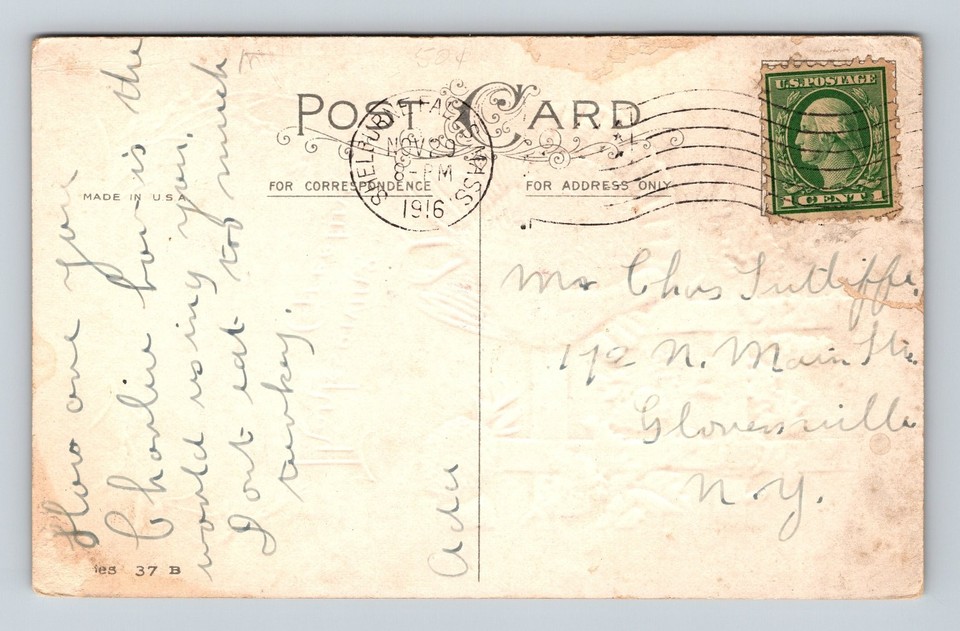 504
POST CARD
SHELBURNE FALLS MASS.
NOV 29
8-PM
1916
U.S. POSTAGE
1 CENT 1
MADE IN U.S.A.
FOR CORRESPONDENCE
FOR ADDRESS ONLY
How are you
Charlie how is the
world using you.
Dont eat too much
turkey.
Ada
Mr Chas Sutliffe.
172 N. Main Str.
Gloversville
N.Y.
ies 37 B